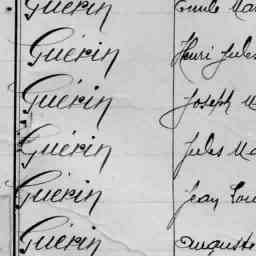 Guérin Emile Ma
Guérin Henri Jules
Guérin Joseph M
Guérin Jules Ma
Guérin Jean Lou
Guérin Auguste